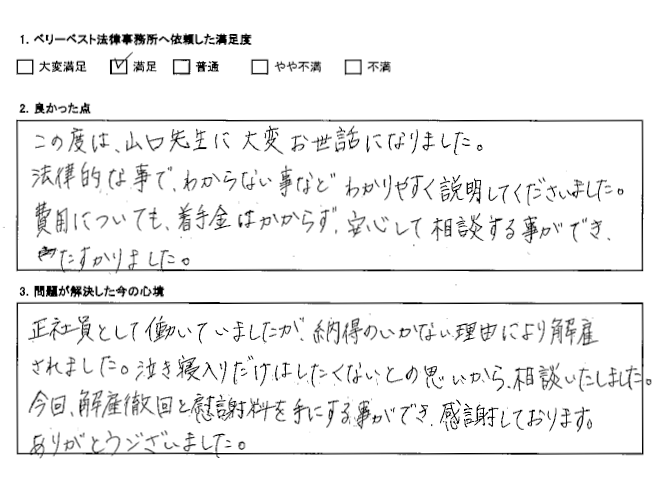 1. ベリーベスト法律事務所へ依頼した満足度
□ 大変満足 ☑ 満足 □ 普通 □ やや不満 □ 不満
2. 良かった点
この度は、山口先生に大変お世話になりました。
法律的な事で、わからない事など わかりやすく説明してくださいました。
費用についても、着手金はかからず、安心して相談する事ができ、
たすかりました。
3. 問題が解決した今の心境
正社員として働いていましたが、納得のいかない理由により解雇
されました。泣き寝入りだけはしたくないとの思いから、相談いたしました。
今回、解雇撤回と慰謝料を手にする事ができ、感謝しております。
ありがとうございました。